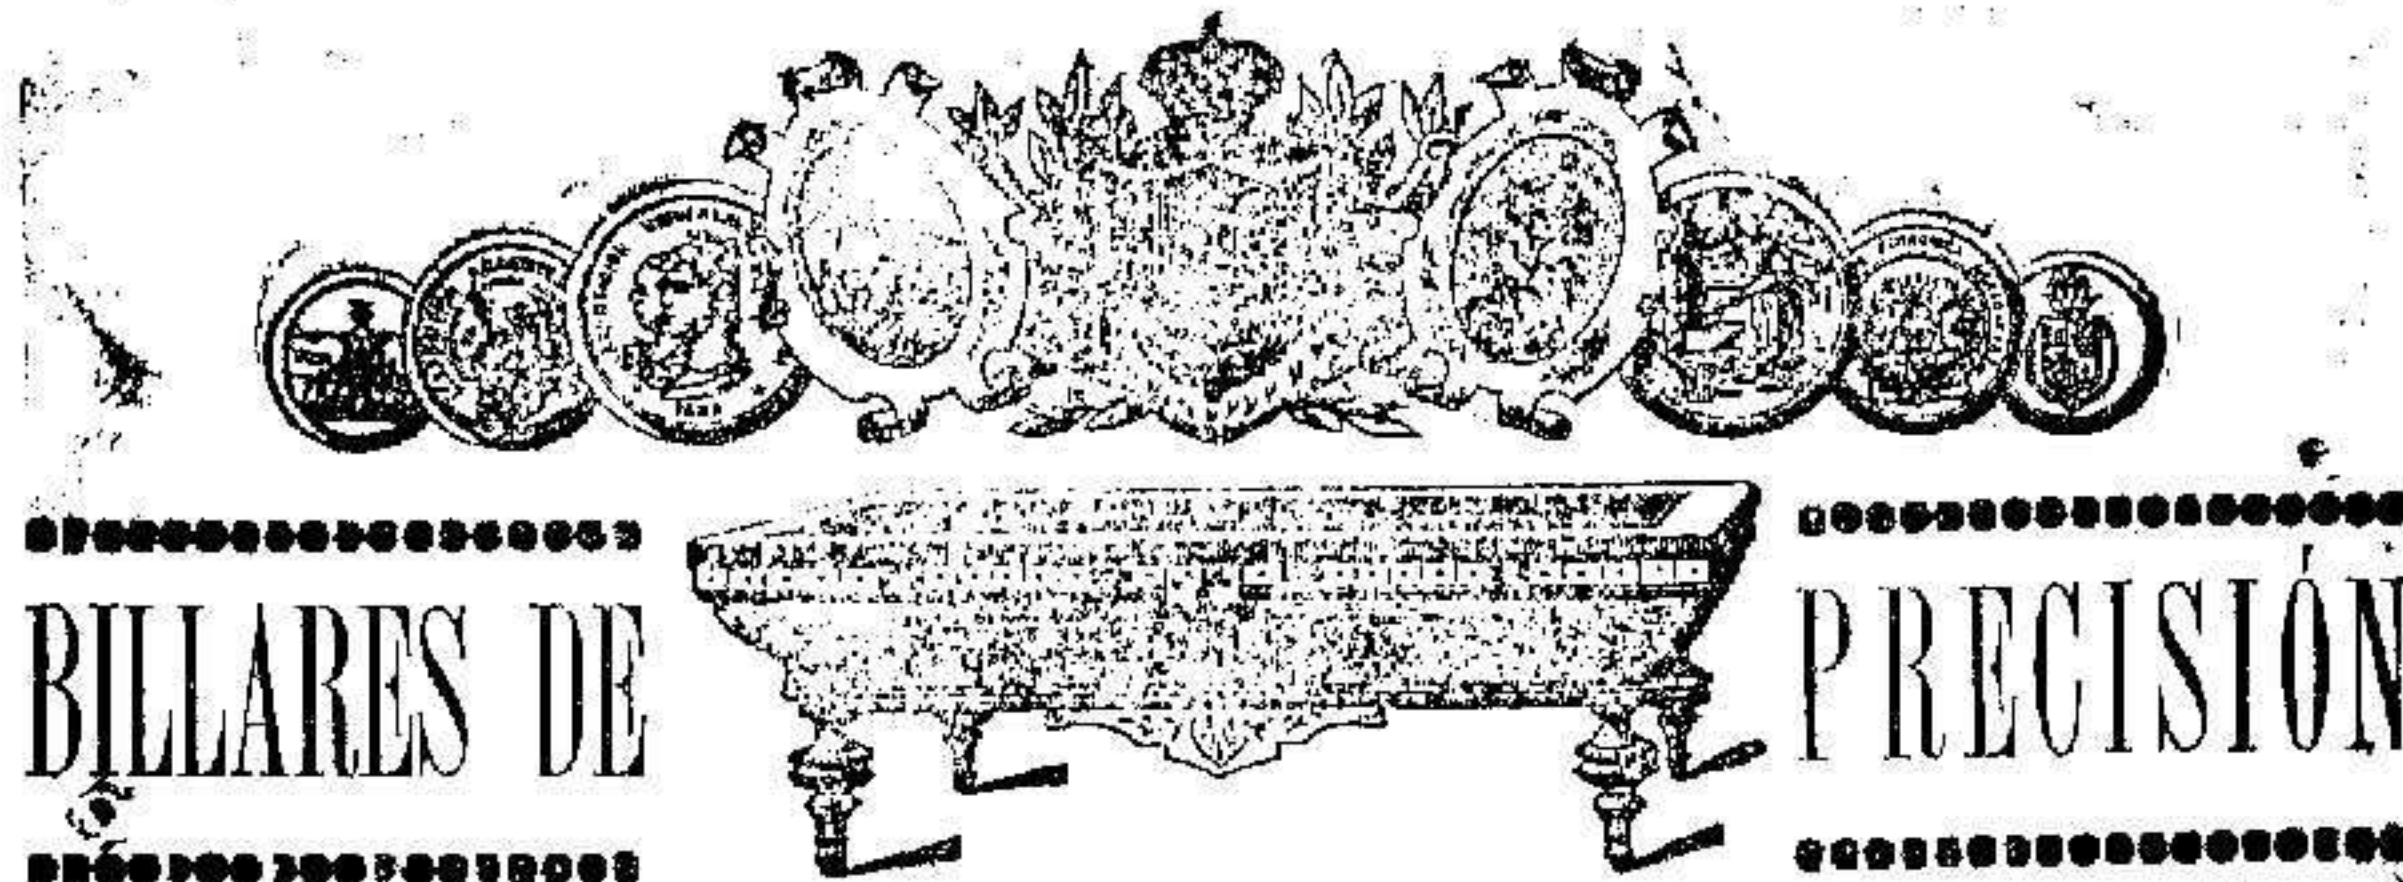 BILLARES DE PRECISIÓN